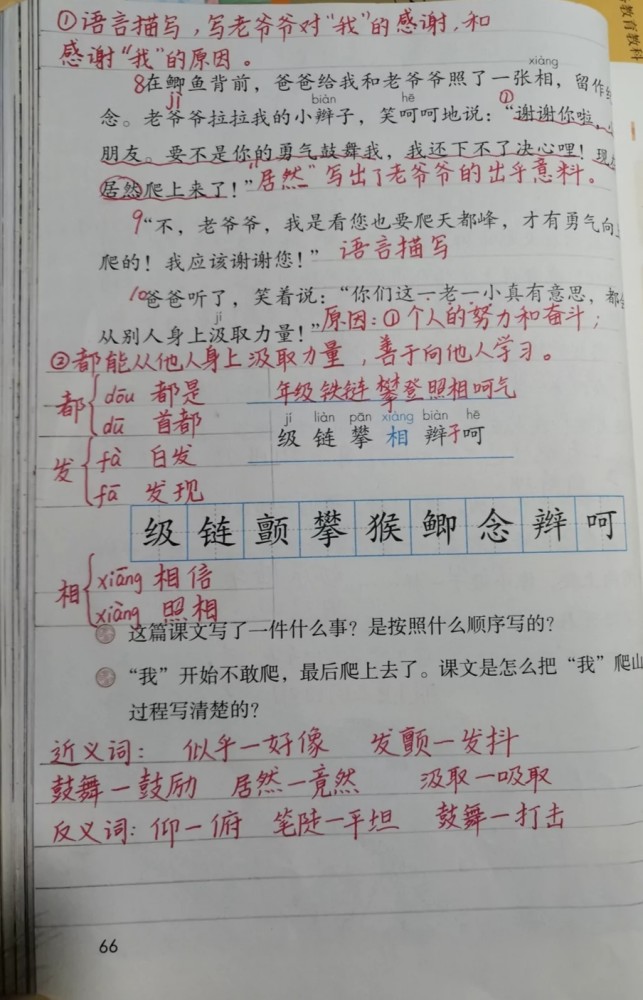 ①语言描写,写老爷爷对“我”的感谢,和
教育教科
感谢“我”的原因。
xiàng
8在鲫鱼背前，爸爸给我和老爷爷照了一张相，留作
jì biàn hē ①
念。老爷爷拉拉我的小辫子，笑呵呵地说：“谢谢你啦，
朋友。要不是你的勇气鼓舞我，我还下不了决心哩！现
居然爬上来了！”“居然”写出了老爷爷的出乎意料。
9“不，老爷爷，我是看您也要爬天都峰，才有勇气向
爬的！我应该谢谢您！” 语言描写
10爸爸听了，笑着说：“你们这一老一小真有意思，都
jí
从别人身上汲取力量！”原因:①个人的努力和奋斗;
②都能从他人身上汲取力量,善于向他人学习。
都 dōu 都是
dū 首都
年级铁链攀登照相呵气
jí liàn pān xiàng biàn hē
级 链 攀 相 辫子呵
发 fà 白发
fā 发现
级 链 颤 攀 猴 鲫 念 辫 呵
相 xiāng 相信
xiàng 照相
这篇课文写了一件什么事？是按照什么顺序写的？
“我”开始不敢爬，最后爬上去了。课文是怎么把“我”爬山
过程写清楚的？
近义词: 似乎—好像 发颤—发抖
鼓舞—鼓励 居然—竟然 汲取—吸取
反义词:仰—俯 笔陡—平坦 鼓舞—打击
66